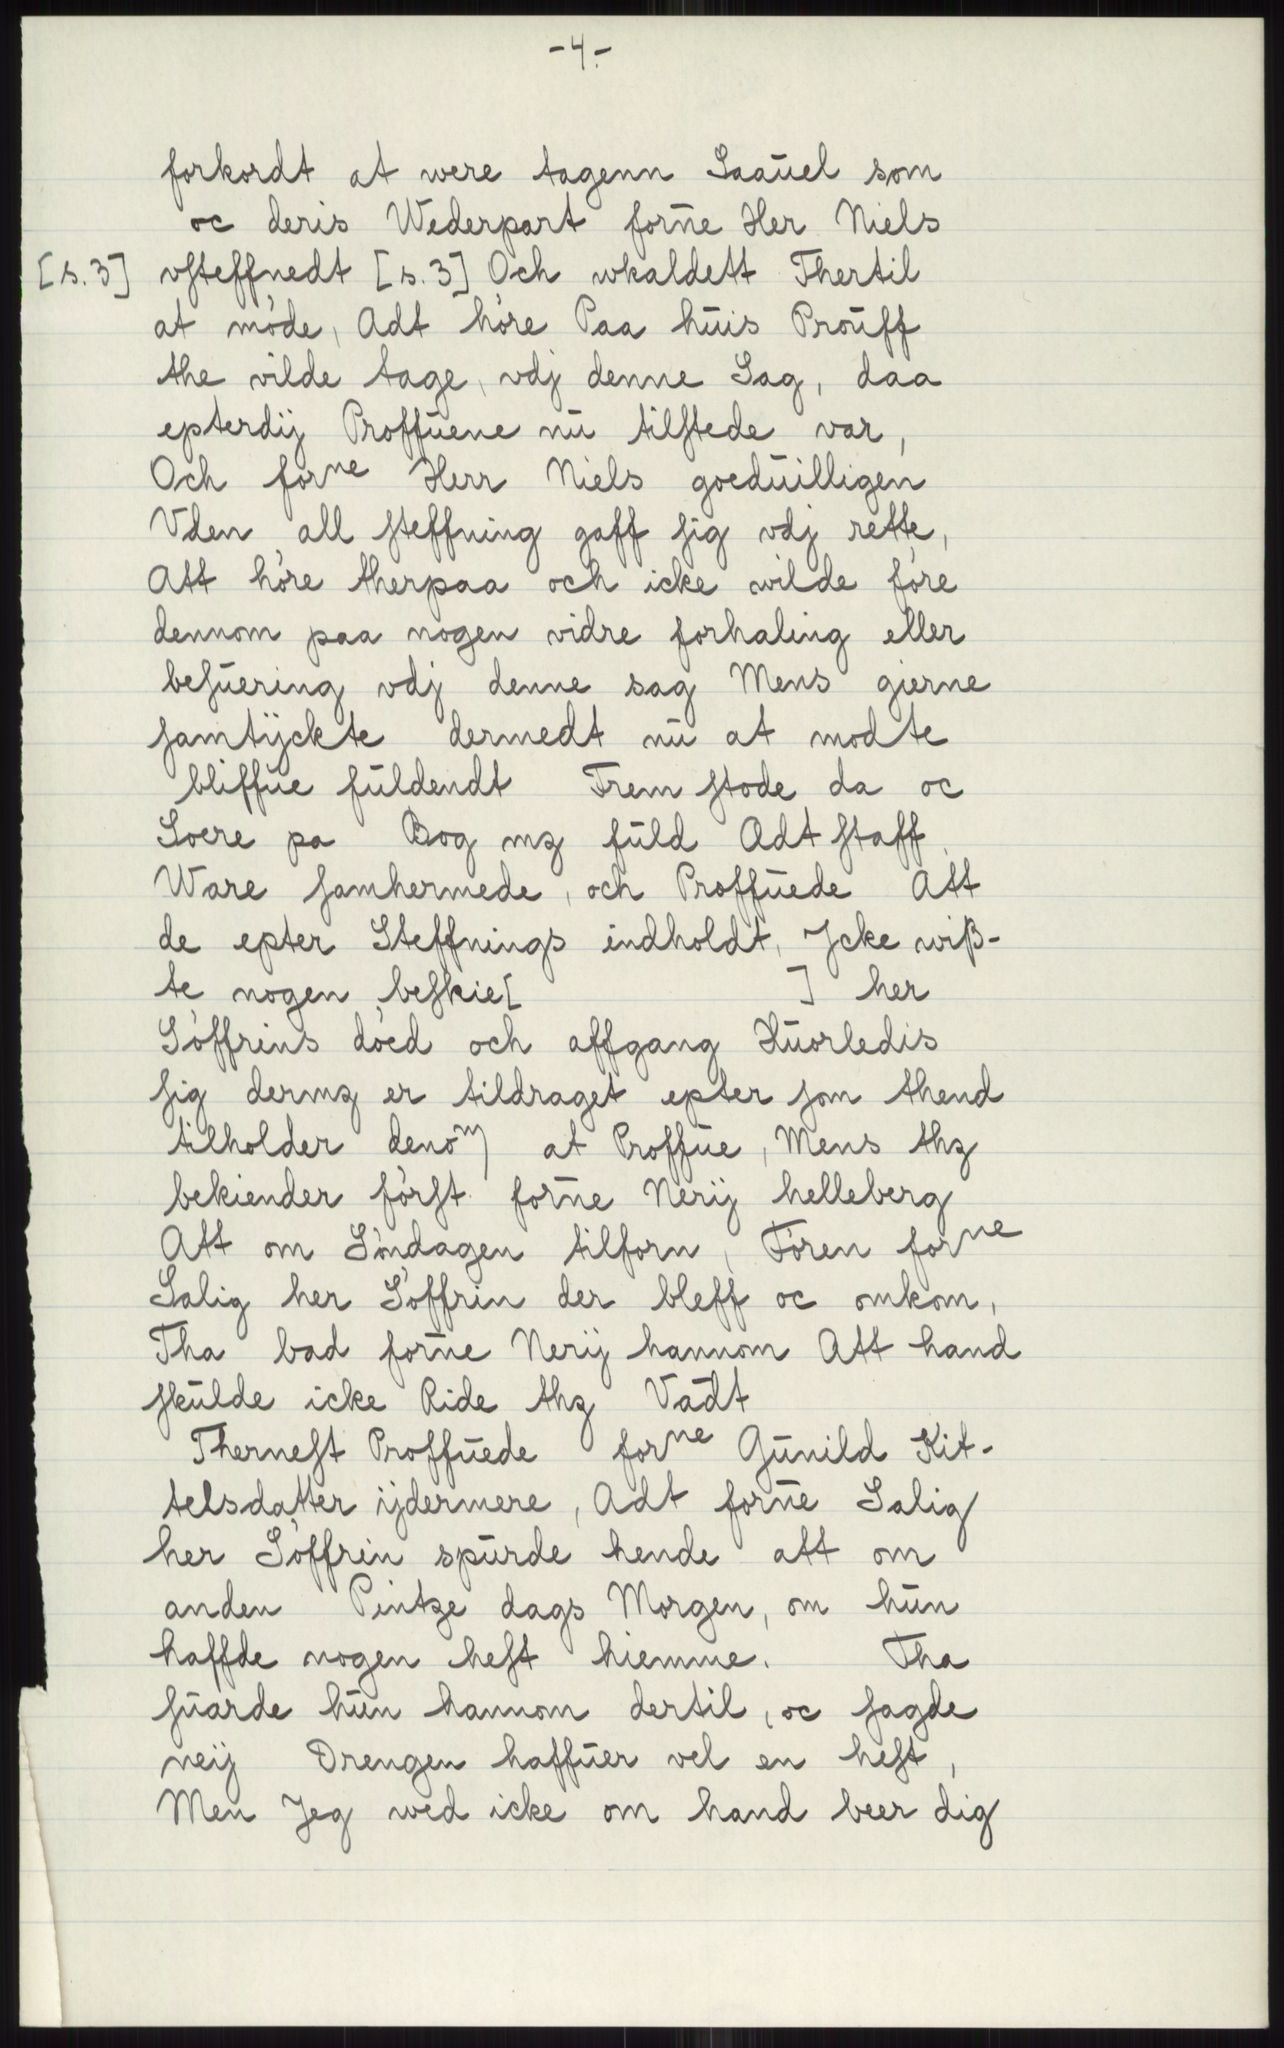 -4.-
forkordt at were tagenn Saauel som
oc deris Wederpart forne Her Niels
[s.3] vsteffnedt [s.3] Och wkaldett Thertil
at móde, Adt hóre Paa huis Prouff
the vilde tage, vdj denne Sag, daa
epterdij Proffuene nu tilstede var,
Och forne Herr Niels goeduilligen
Vden all steffning gaff sig vdj rette,
Att hóre therpaa och icke wilde fóre
dennom paa nogen vidre forhaling eller
besuering vdj denne sag Mens gierne
samtÿckte dermedt nu at modte
bliffue fuldendt Frem stode da oc
Soere pa Bog mz fuld Adt staff.
Ware samhermede, och Proffuede Att
de epter Steffnings indholdt, Jcke wiß-
te nogen beskie[ ] her
Sóffrins dóed och affgang Huorledis
sig dermz er tildraget epter som thend
tilholder denom at Proffue, Mens thz
bekiender fórst forne Nerij helleberg
Att om Sóndagen tilforn, Fóren forne
Salig her Sóffrin der bleff oc omkom,
Tha bad forne Nerij hannom Att hand
skulde icke Ride thz Vadt
Thernest Proffuede forne Gunild Kit-
telsdatter ijdermere, Adt forne Salig
her Sóffrin spurde hende att om
anden Pintze dags Morgen, om hun
haffde nogen hest hiemme. Tha
suarde hun hannom dertil, oc sagde
neij Drengen haffuer vel en hest,
Men Jeg wed icke om hand beer dig